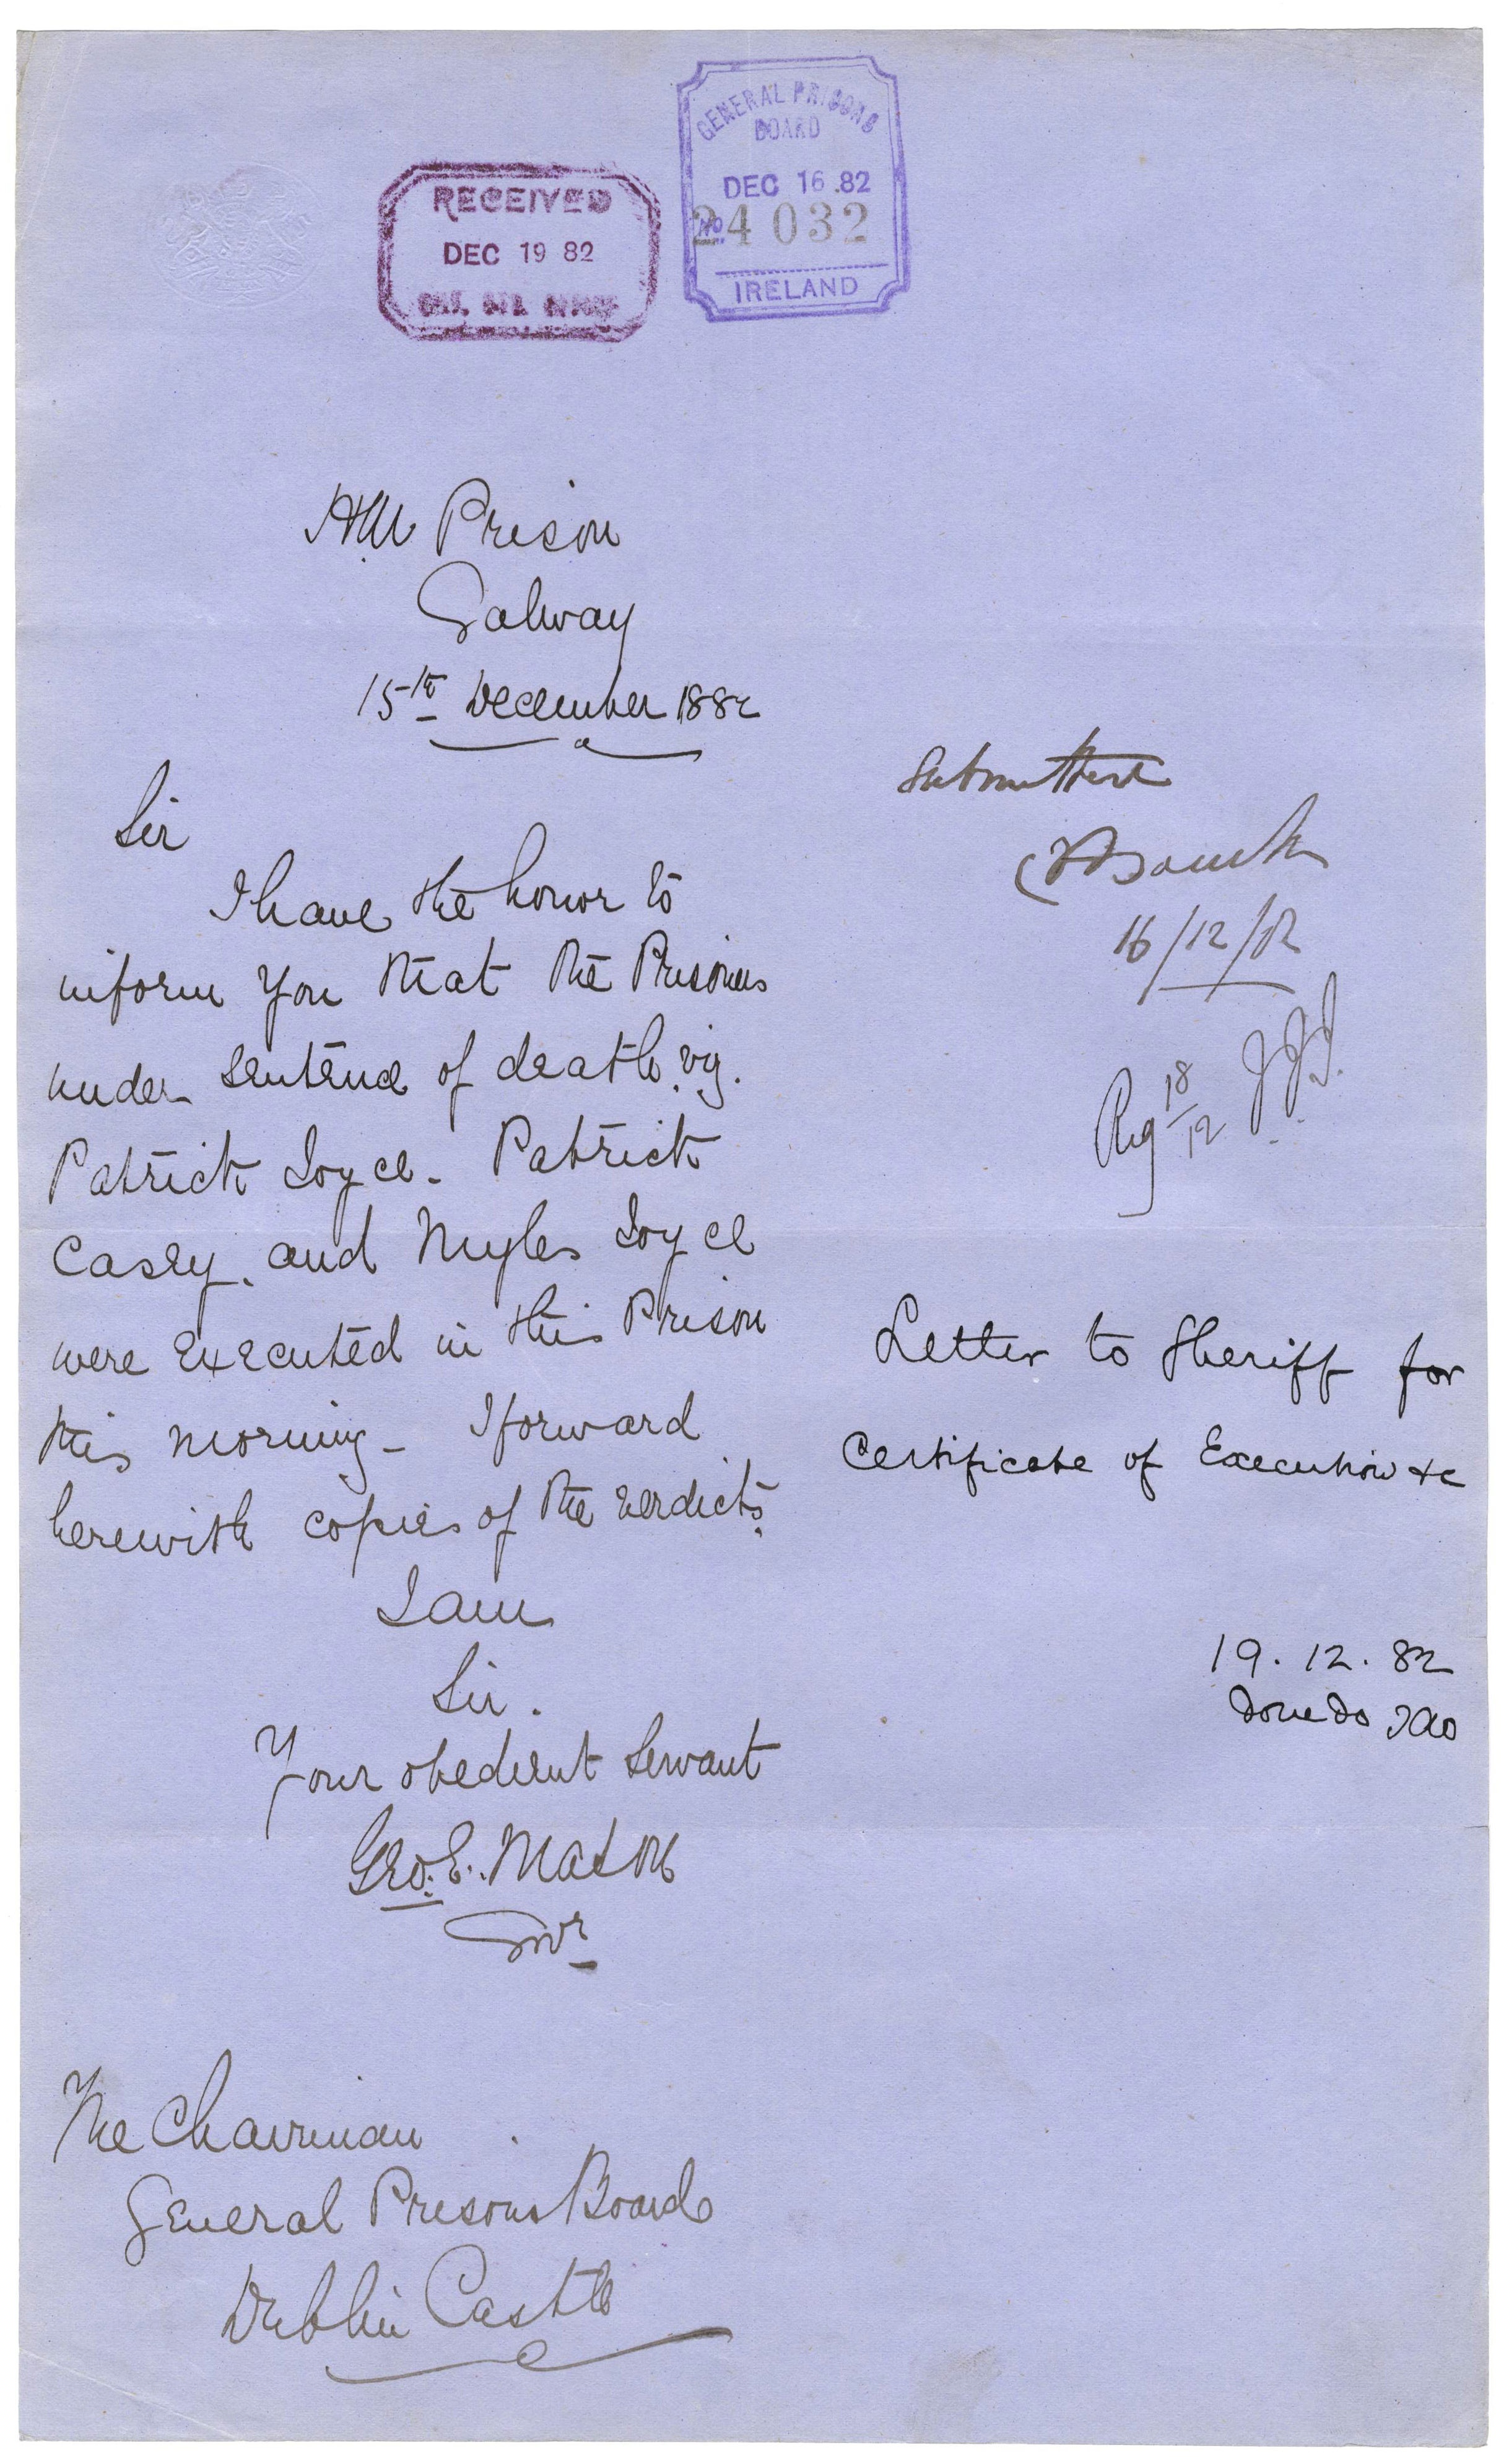 GENERAL PRISONS
BOARD
DEC 16 .82
No. 24032
IRELAND
RECEIVED
DEC 19 82
HM Prison
Galway
15th December 1882
Sir
I have the honor to
inform you that the Prisoners
under sentence of death. viz.
Patrick Joyce. Patrick
Casey. and Myles Joyce
were executed in this Prison
this morning - I forward
herewith copies of the verdicts.
I am
Sir.
Your obedient servant
Geo. E. Mason
Govr
The Chairman
General Prisons Board
Dublin Castle
Submitted
16/12/82
18/12
Letter to Sheriff for
Certificate of Execution &c
19. 12. 82